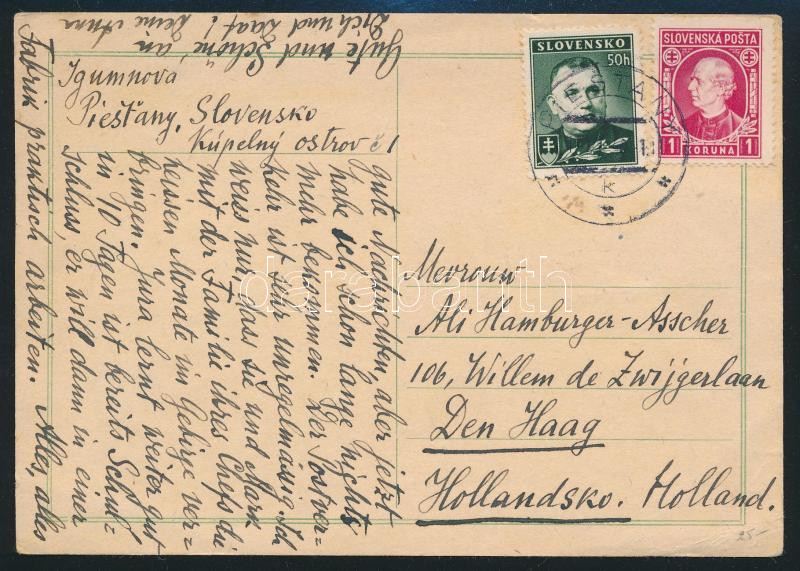 SLOVENSKO
50h
SLOVENSKÁ POŠTA
1 KORUNA 1
Igumnova
Piešťany, Slovensko
Kúpelný ostrov č 1
gute Nachrichten, aber jetzt
habe ich schon lange nichts
mehr bekommen. Der Postver=
kehr ist sehr unregelmässig. Ich
weiss nur, dass sie und Mark
mit der Familie ihres Chefs die
heissen Monate im Gebirge ver=
bringen. Jura lernt weiter gut
in 10 Tagen ist bereits Schul=
schluss, er will dann in einer
Fabrik praktisch arbeiten. Alles, alles
Gute und Schöne, an
Dich und Zaaf! Deine Anna
Mevrouw
Ali Hamburger-Asscher
106, Willem de Zwijgerlaan
Den Haag
Hollandsko. Holland.
25-
darabanth